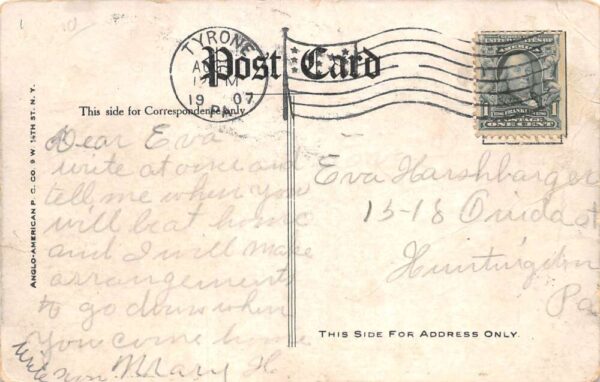 TYRONE
AUG
M
1907
PA.
Post Card
UNITED STATES OF AMERICA
1
FRANKLIN
POSTAGE
ONE CENT
This side for Correspondence only
ANGLO-AMERICAN P. C. CO. 9 W 14TH ST. N. Y.
Dear Eva
write at once and
tell me when you
will be at home
and I will make
arrangements
to go down when
you come home
write soon Mary H
Eva Harshbarger
1518 Onida st
Huntingdon
Pa
THIS SIDE FOR ADDRESS ONLY.